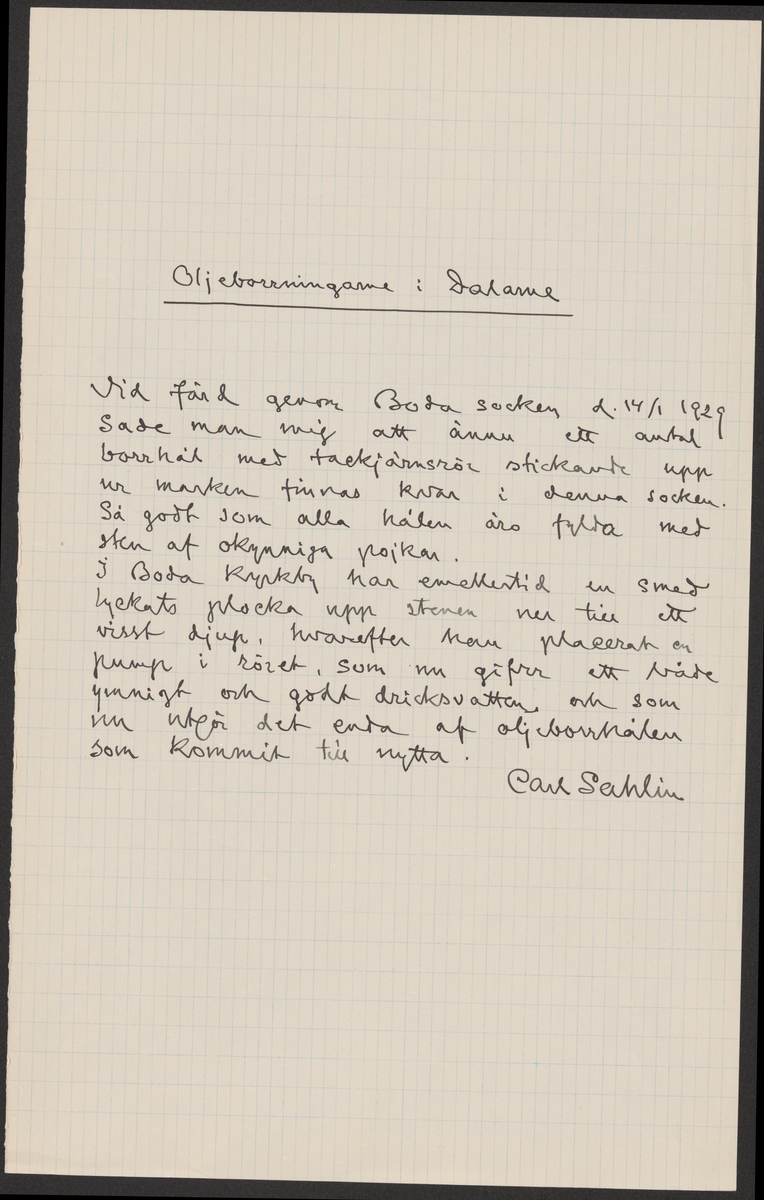 Oljeborrningarne i Dalarne
Vid färd genom Boda socken d. 14/1 1929
sade man mig att ännu ett antal
borrhål med tackjärnsrör stickande upp
ur marken finnas kvar i denna socken.
Så godt som alla hålen äro fylda med
sten af okynniga pojkar.
I Boda Kyrkby har emellertid en smed
lyckats plocka upp stenen ner till ett
visst djup, hvarefter han placerat en
pump i röret, som nu gifver ett både
ymnigt och godt dricksvatten, och som
nu utgör det enda af oljeborrhålen
som kommit till nytta.
Carl Sahlin